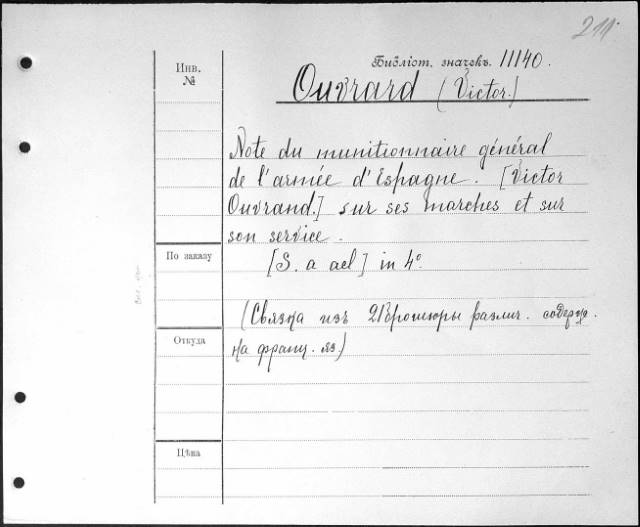 211.
Инв.
№
Библіот. значекъ. 11140.
Ouvrard (Victor.)
Note du munitionnaire général
de l'armée d'Espagne. [Victor
Ouvrand.] sur ses marches et sur
son service.
По заказу
[S. a ael] in 4°.
(Связка изъ 21 брошюры различ. содерж.
Откуда
на франц. яз.)
Цѣна